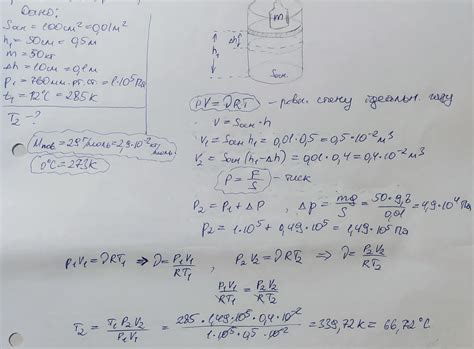 Дано:
Sосн = 100см² = 0,01м²
h₁ = 50см = 0,5м
m = 50кг
Δh = 10см = 0,1м
P₁ = 760мм.рт.ст. = 1·10⁵Па
t₁ = 12°C = 285K
T₂ - ?
Mпов = 29г/моль = 2,9·10⁻²кг/моль
0°C = 273K
m
Δh
h₁
Sосн
PV = νRT - рівн. стану ідеальн. газу
V = Sосн·h
V₁ = Sосн h₁ = 0,01·0,5 = 0,5·10⁻²м³
V₂ = Sосн (h₁ - Δh) = 0,01·0,4 = 0,4·10⁻²м³
P = F/S - тиск
P₂ = P₁ + ΔP , Δp = mg/S = 50·9,8/0,01 = 4,9·10⁴Па
P₂ = 1·10⁵ + 0,49·10⁵ = 1,49·10⁵Па
P₁V₁ = νRT₁ ⇒ ν = P₁V₁/RT₁ , P₂V₂ = νRT₂ ⇒ ν = P₂V₂/RT₂
P₁V₁/RT₁ = P₂V₂/RT₂
T₂ = T₁P₂V₂/P₁V₁ = 285·1,49·10⁵·0,4·10⁻²/1·10⁵·0,5·10⁻² = 339,72K = 66,72°C